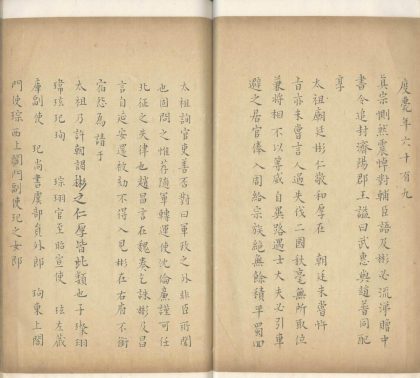 度薨年六十有九
真宗惻然震悼對輔臣語及彬必流涕贈中
書令追封濟陽郡王諡曰武惠與趙普同配
享
太祖廟廷彬仁敬和厚在　朝廷未嘗忤
旨亦未嘗言人過失伐二國秋毫無所取位
兼將相不以等威自異路遇士大夫必引車
避之居官俸入周給宗族絶無餘積平蜀回
太祖詢官吏善否對曰軍政之外非臣所聞
也固問之惟薦隨軍轉運使沈倫廉謹可任
北征之失律也趙昌言在魏奏乞誅彬及昌
言自延安還被劾不得入見彬在右府不銜
宿怨爲　請于
太祖乃許朝謁彬之仁厚皆此類也子璨珝
瑋玹玘珣　琮珝官至昭宣使　玹左藏
庫副使　玘尚書虞部員外郎　珣東上閤
門使琮西上閤門副使玘之女即